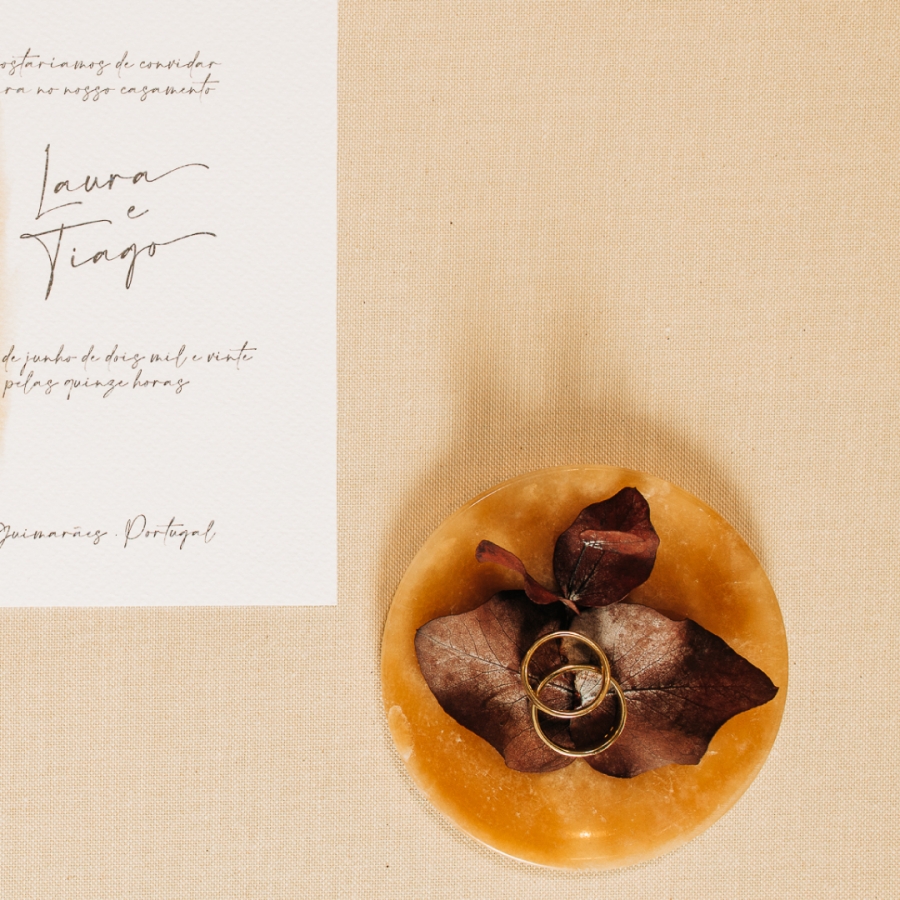 ostaríamos de convidar
ra no nosso casamento
Laura
e
Tiago
de junho de dois mil e vinte
pelas quinze horas
Guimarães . Portugal